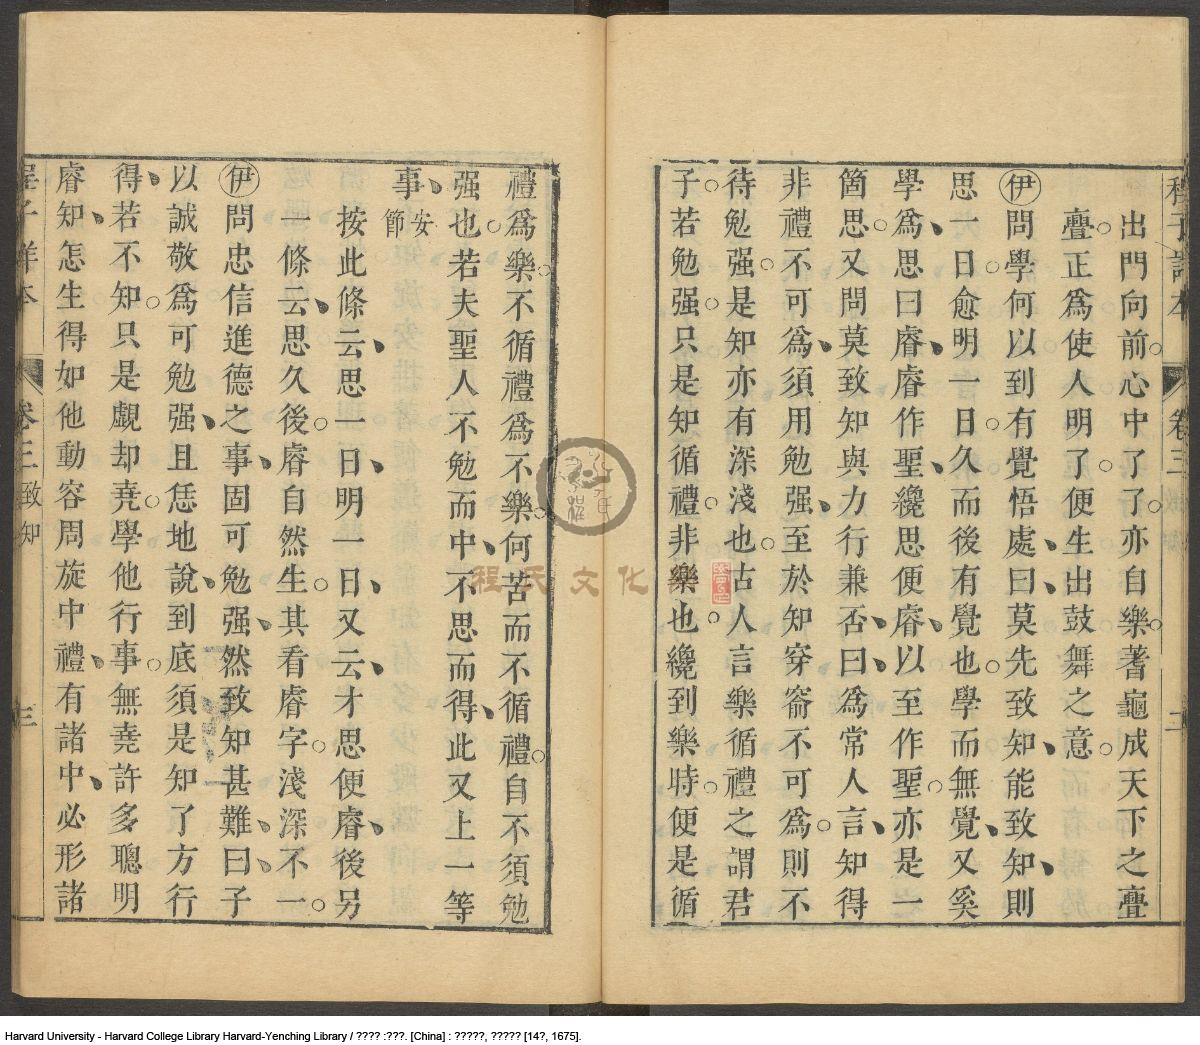 程子詳本 卷三 二
出門向前心中了了亦自樂蓍龜成天下之亹
亹正爲使人明了便生出鼓舞之意
伊問學何以到有覺悟處曰莫先致知能致知則
思一日愈明一日久而後有覺也學而無覺又奚
學爲思曰睿睿作聖纔思便睿以至作聖亦是一
箇思又問莫致知與力行兼否曰爲常人言知得
非禮不可爲須用勉强至於知穿窬不可爲則不
待勉强是知亦有深淺也古人言樂循禮之謂君
子若勉强只是知循禮非樂也纔到樂時便是循
禮爲樂不循禮爲不樂何苦而不循禮自不須勉
强也若夫聖人不勉而中不思而得此又上一等
事安節
按此條云思一日明一日又云才思便睿後另
一條云思久後睿自然生其看睿字淺深不一
伊問忠信進德之事固可勉强然致知甚難曰子
以誠敬爲可勉强且恁地說到底須是知了方行
得若不知只是覰却堯學他行事無堯許多聰明
睿知怎生得如他動容周旋中禮有諸中必形諸
程子詳本 卷三 致知 三
程氏文化
Harvard University - Harvard College Library Harvard-Yenching Library / ???? :???. [China] : ?????, ????? [14?, 1675].